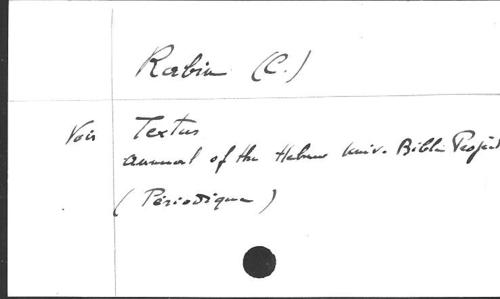 Rabin (C.)
Voir Textus
Annual of the Hebrew Univ. Bible Project
(Périodique)